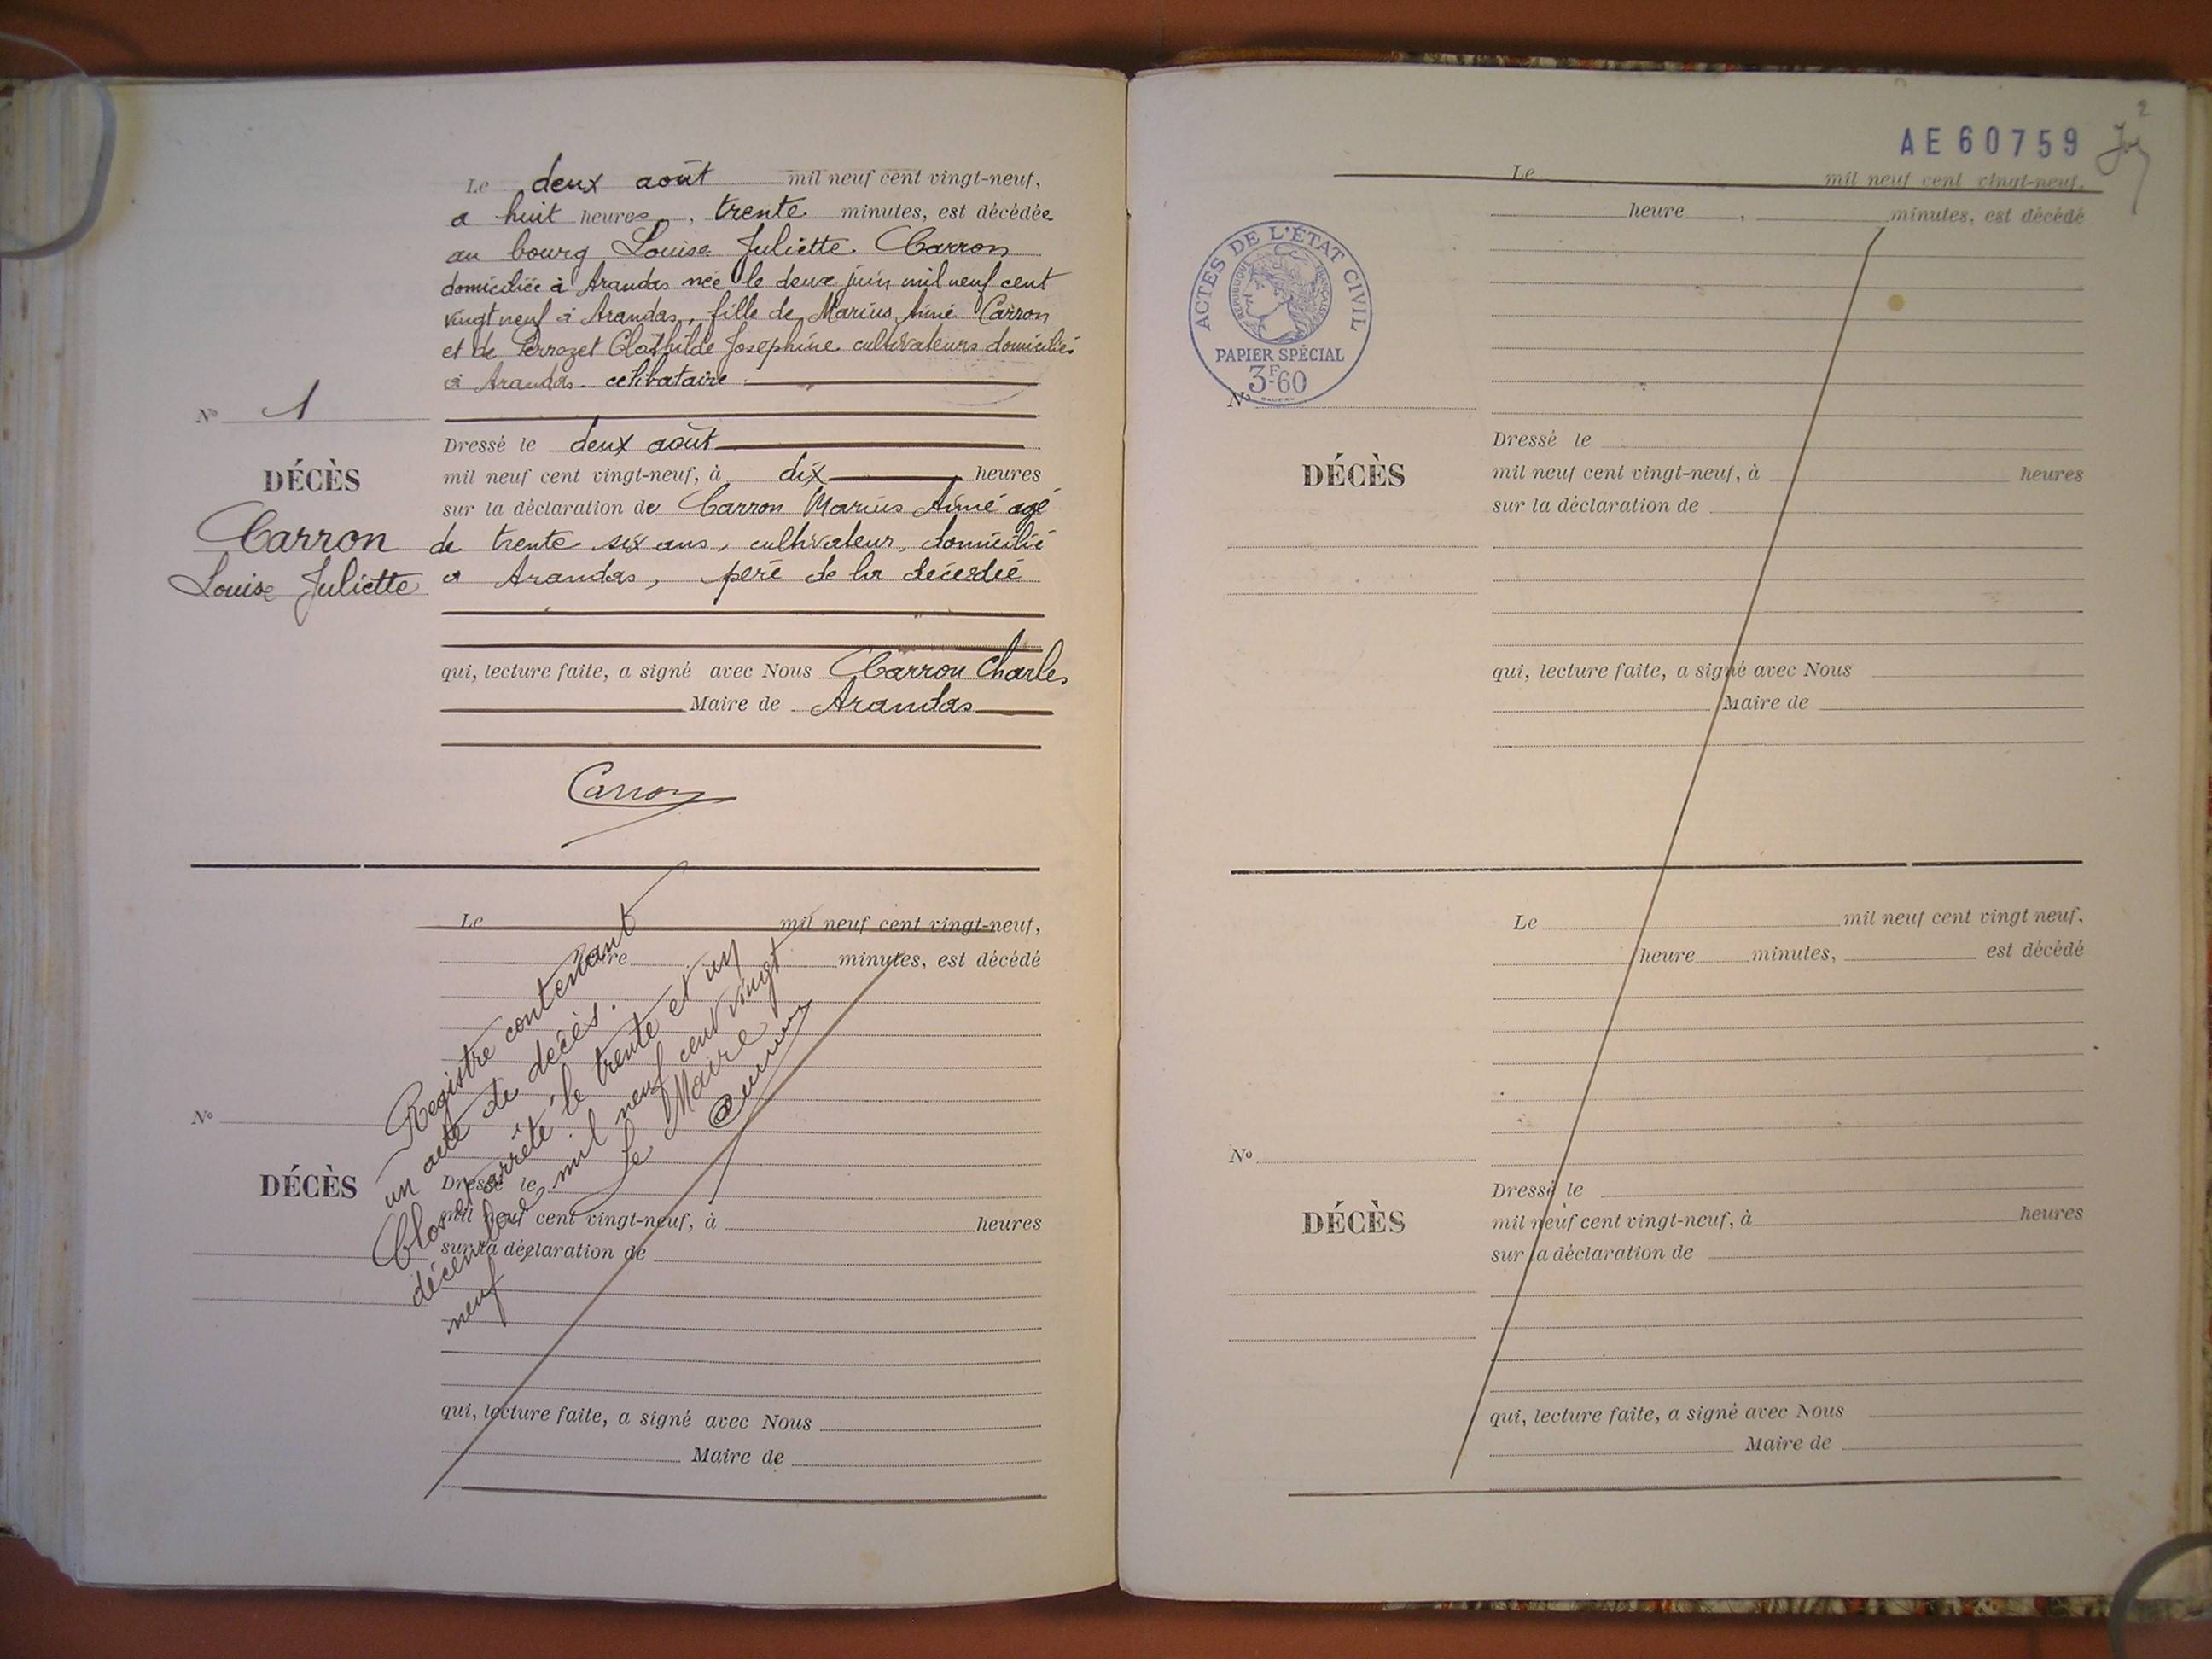 Le deux août mil neuf cent vingt-neuf,
a huit heures, trente minutes, est décédée
au bourg Louise Juliette Carron
domiciliée à Arandas née le deux juin mil neuf cent
vingt neuf à Arandas, fille de Marius Aimé Carron
et de Perrozet Clothilde Josephine cultivateurs domiciliés
à Arandas. celibataire.
No 1
DÉCÈS
Carron
Louise Juliette
Dressé le deux août
mil neuf cent vingt-neuf, à dix heures
sur la déclaration de Carron Marius Aimé agé
de trente six ans, cultivateur, domicilié
a Arandas, pere de la décédée
qui, lecture faite, a signé avec Nous Carron Charles
Maire de Arandas
Carron
Le mil neuf cent vingt-neuf,
heure minutes, est décédé
Registre contenant
un acte de décès.
Clos et arrêté le trente et un
décembre mil neuf cent vingt
neuf
Le Maire
No
DÉCÈS
Dressé le
mil neuf cent vingt-neuf, à heures
sur la déclaration de
qui, lecture faite, a signé avec Nous
Maire de
2
AE60759
Le mil neuf cent vingt-neuf,
heure, minutes, est décédé
ACTES DE L'ÉTAT CIVIL
RÉPUBLIQUE FRANÇAISE
PAPIER SPÉCIAL
3F60
No
DÉCÈS
Dressé le
mil neuf cent vingt-neuf, à heures
sur la déclaration de
qui, lecture faite, a signé avec Nous
Maire de
Le mil neuf cent vingt neuf,
heure minutes, est décédé
No
DÉCÈS
Dressé le
mil neuf cent vingt-neuf, à heures
sur la déclaration de
qui, lecture faite, a signé avec Nous
Maire de